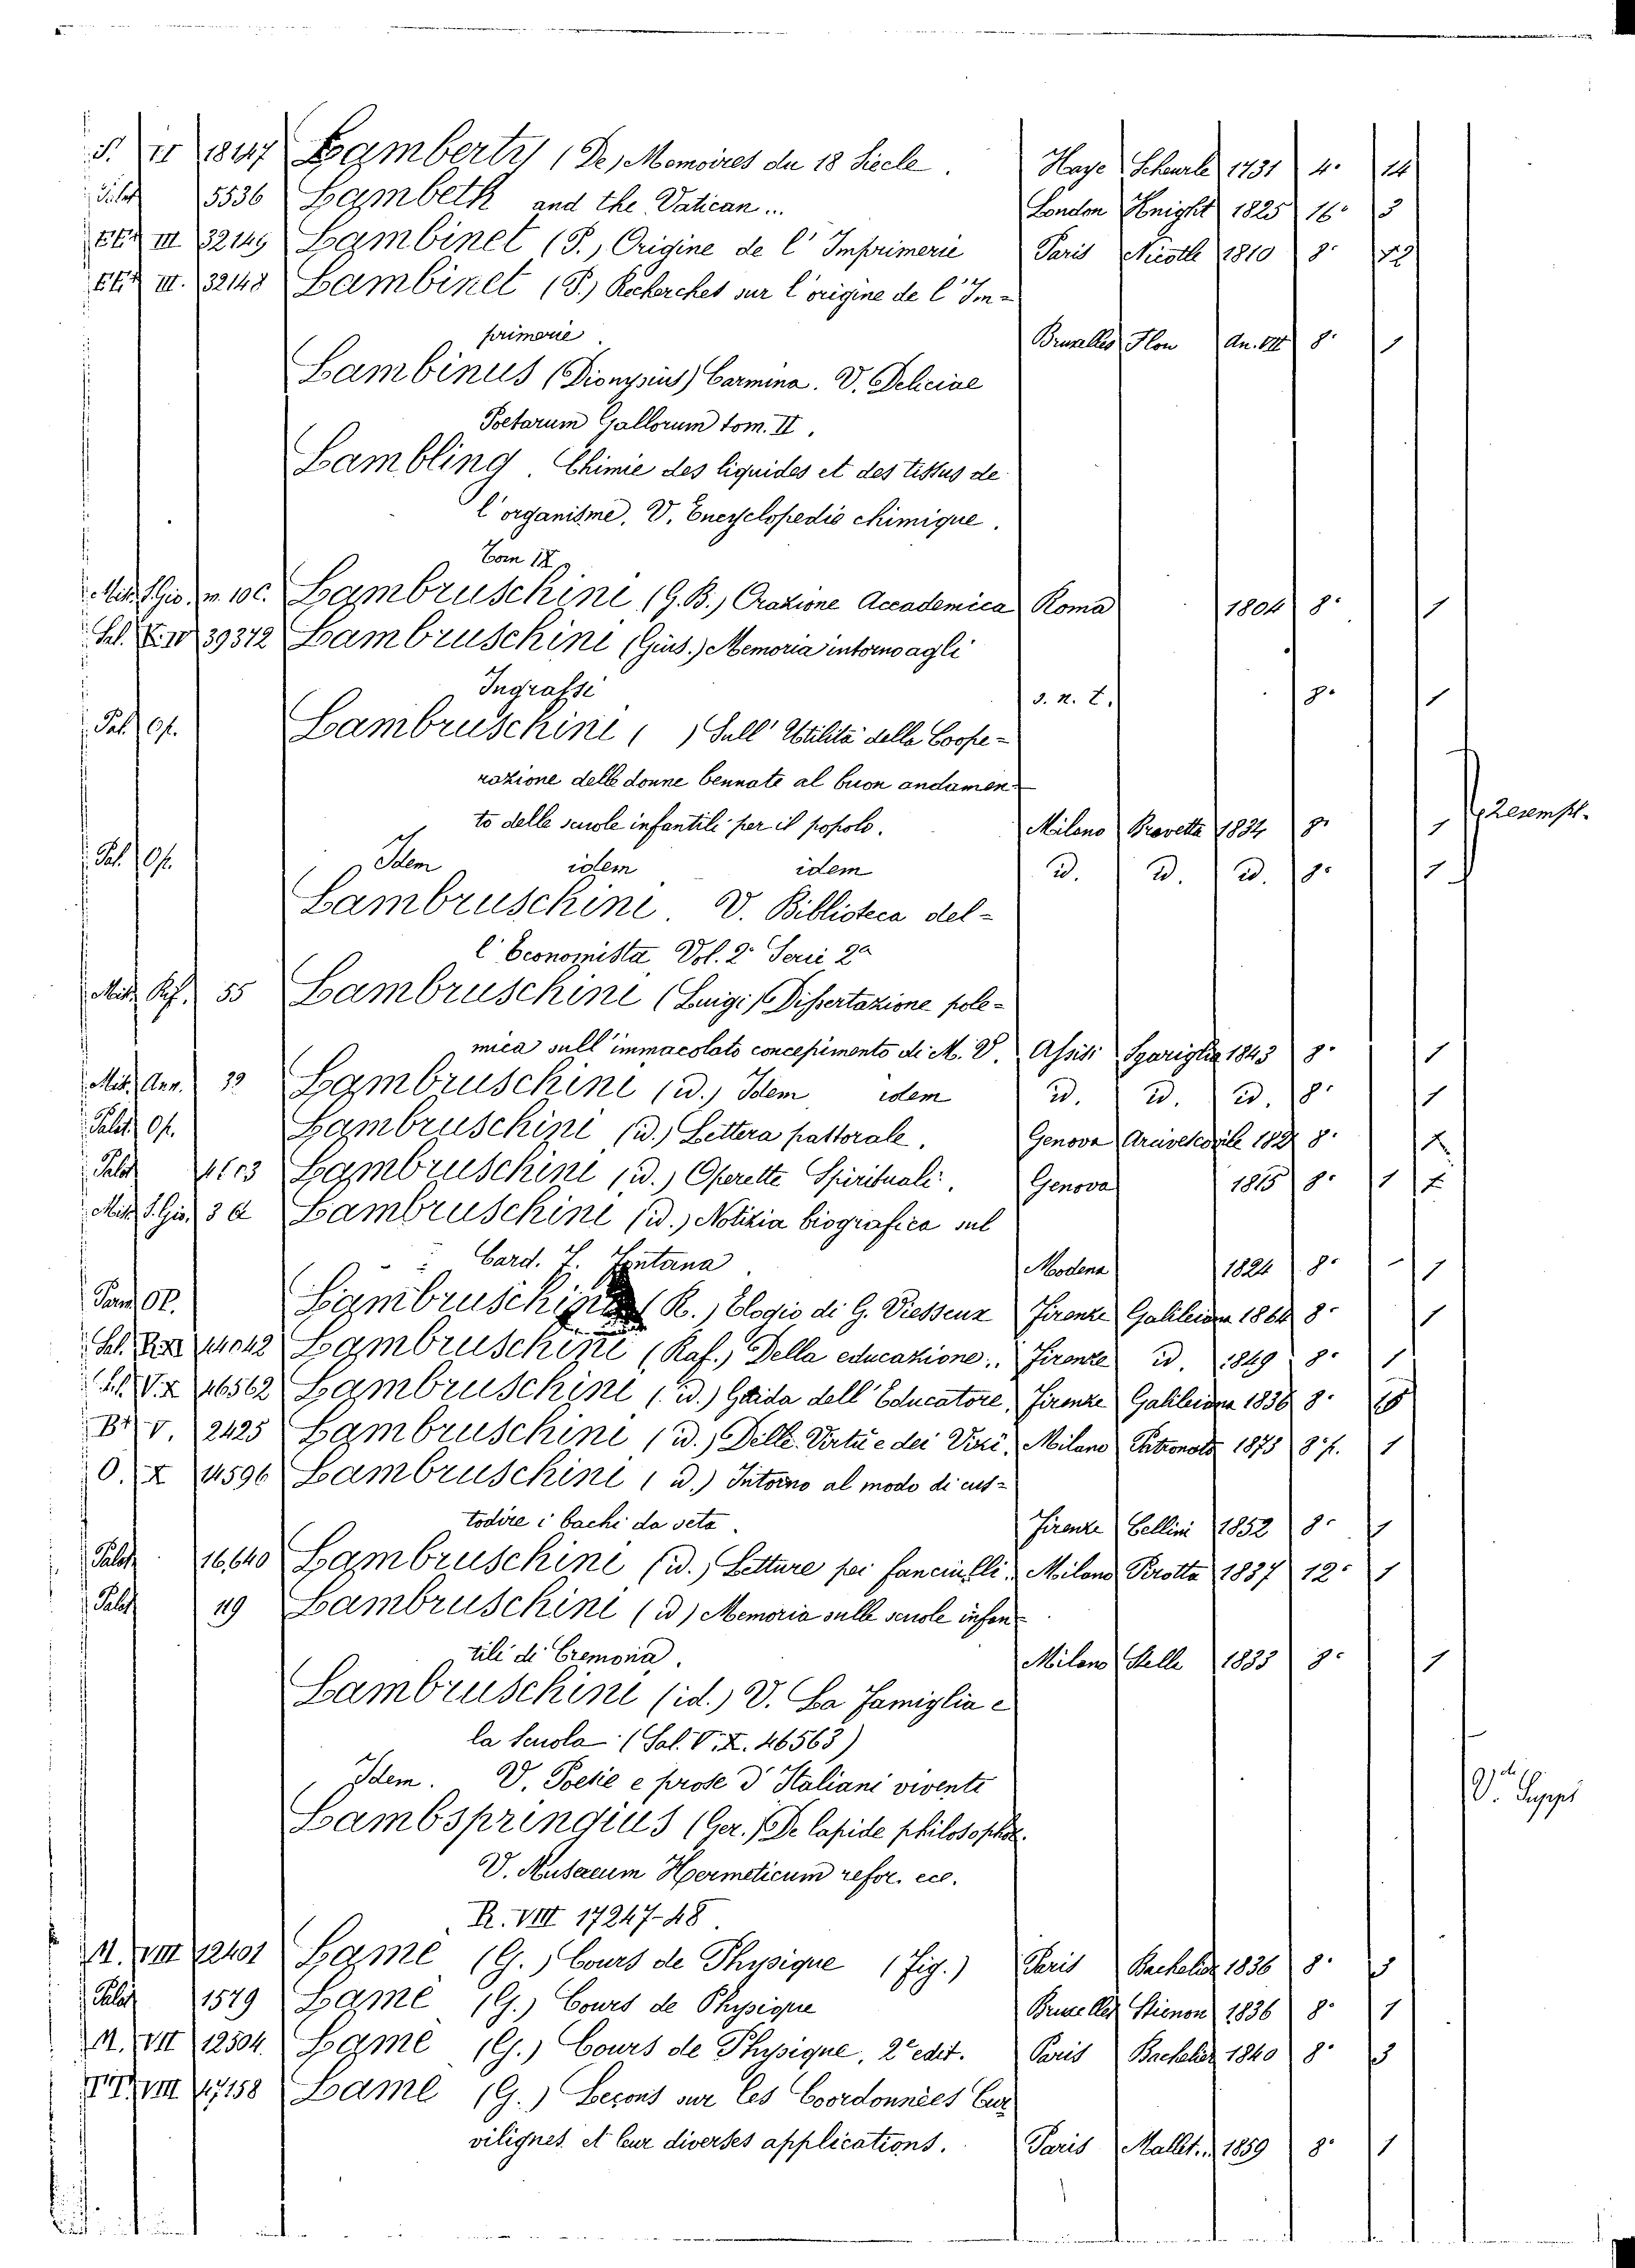 S. II 1847 Lamberty (De) Memoires du 18 Siecle. Haye Scheurle 1731 4. 14
5536 Lambeth and the Vatican... London Knight 1825 16° 3
III 32149 Lambinet (P.) Origine de l'Imprimerie Paris Nicolle 1810 8°
III. 32148 Lambinet (P.) Recherches sur l'origine de l'Im=
primerie. Bruxelles Flon An. VII 8° 1
Lambinus (Dionysius) Carmina. V. Deliciae
Poetarum Gallorum tom. II.
Lambling. Chimie des liquides et des tissus de
l'organisme. V. Encyclopedie chimique.
Tom IX
m. 10 C. Lambruschini (G. B.) Orazione Accademica Roma 1804 8° 1
Sal. 39372 Lambruschini (Gius.) Memoria intorno agli
Ingrassi s. n. t. 8° 1
Pal. Op. Lambruschini ( ) Sull' Utilità della Coope=
razione delle donne bennate al buon andamen=
to delle scuole infantili per il popolo. Milano Bravetta 1834 8° 1 2 esempl.
Pal. Op. Idem idem idem id. id. id. 8° 1
Lambruschini. V. Biblioteca del=
l'Economista Vol. 2° Serie 2a
Misc. 55 Lambruschini (Luigi) Dissertazione pole=
mica sull'immacolato concepimento di M. V. Assisi Sgariglia 1843 8° 1
Misc. Lambruschini (id.) Idem idem id. id. id. 8° 1
Palat. Op. Lambruschini (id.) Lettera pastorale. Genova Arcivescovile 8°
Lambruschini (id.) Operette Spirituali. Genova 1815 8° 1
3 d Lambruschini (id.) Notizia biografica sul
Card. F. Fontana Modena 1824 8° 1
OP. Lambruschini (R.) Elogio di G. Viesseux Firenze Galileiana 1864 8° 1
Lambruschini (Raf.) Della educazione.. Firenze id. 1849 8° 1
V. X 46562 Lambruschini (id.) Guida dell'Educatore, Firenze Galileiana 1836 8°
V. 2425 Lambruschini (id.) Delle Virtù e dei Vizi, Milano Patronato 1873 8° p. 1
O. X 14596 Lambruschini (id.) Intorno al modo di cus=
todire i bachi da seta. Firenze Cellini 1852 8° 1
Palat 16,640 Lambruschini (id.) Letture pei fanciulli. Milano Pirotta 1837 12° 1
Palat Lambruschini (id) Memoria sulle scuole infan=
tili di Cremona. Milano Stella 1833 8° 1
Lambruschini (id.) V. La Famiglia e
la Scuola (Sal. V. X. 46563)
Idem. V. Poesie e prose d'Italiani viventi
V. Suppl
Lambspringius (Ger.) De lapide philosophor.
V. Musaeum Hermeticum refor. ecc.
R. VIII 17247-48.
M. VIII 12401 Lamé (G.) Cours de Physique (Fig.) Paris Bachelier 1836 8° 3
Palat 1579 Lamé (G.) Cours de Physique Bruxelles Stienon 1836 8° 1
M. VII 12504. Lamé (G.) Cours de Physique, 2e edit. Paris Bachelier 1840 8° 3
VIII 17158 Lamé (G.) Leçons sur les Coordonnées Cur
vilignes et leur diverses applications. Paris Mallet.. 1859 8° 1